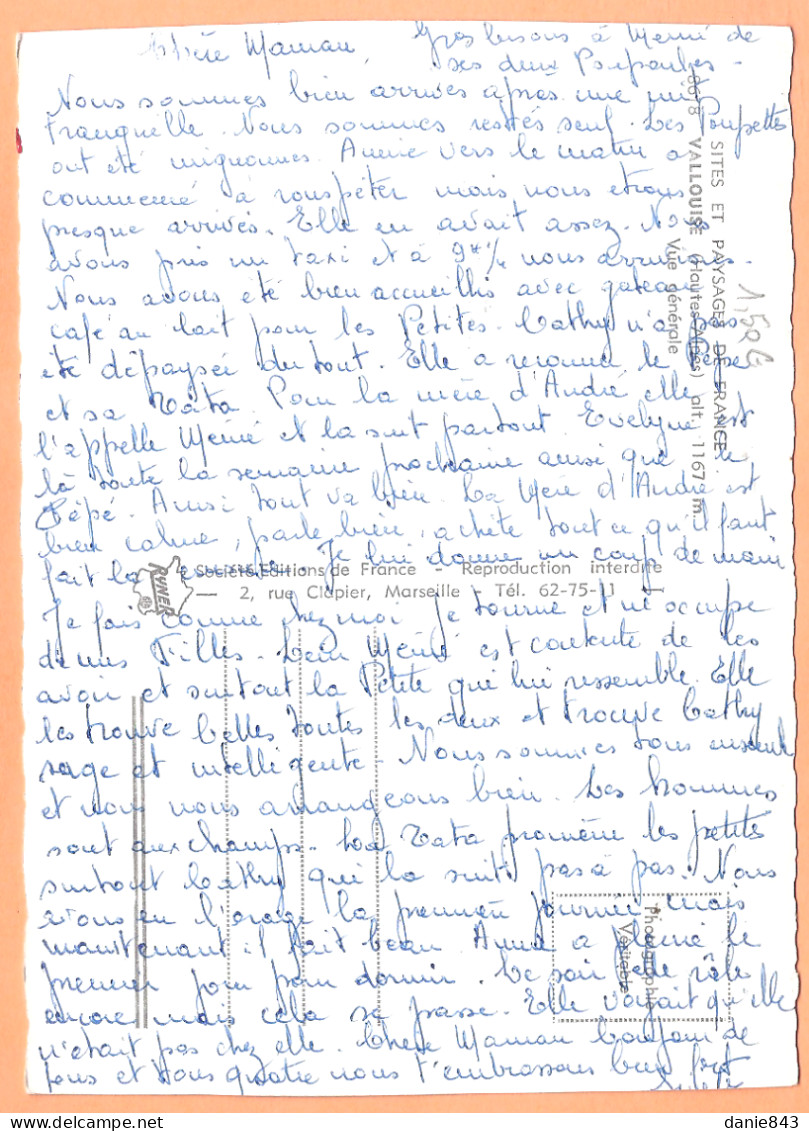 Chère Maman, Gros bisous à Mémé de
ses deux Poupoules -
Nous sommes bien arrivés après une nuit
tranquille. Nous sommes restés seul. Les Poupettes
ont été mignonnes. Annie vers le matin a
commencé à rouspéter mais nous etions
presque arrivés. Elle en avait assez. Nous
avons pris un taxi et à 9h ½ nous arrivions.
Nous avons été bien accueillis avec gateau
café au lait pour les Petites. Cathy n'a pas
été dépaysée du tout. Elle a reconnu le Pépé
et sa Tata. Pour la mère d'André elle
l'appelle Mémé et la suit partout. Evelyne est
là toute la semaine prochaine ainsi que le
Pépé. Ainsi tout va bien. La Mère d'André est
bien calme, parle bien, achète tout ce qu'il faut
fait la cuisine. Je lui donne un coup de main
Je fais comme chez moi Je tourne et m'occupe
de mes Filles. Mémé est contente de les
avoir et surtout la Petite qui lui ressemble. Elle
les trouve belles toutes les deux et trouve Cathy
sage et intelligente - Nous sommes tous ensemble
et nous nous arrangeons bien. Les hommes
sont aux champs - La Tata promène les petites
surtout Cathy qui la suit pas à pas. Nous
avons eu l'orage la première journée mais
maintenant il fait beau Annie a pleuré le
premier jour pour dormir. Le soir elle râle
encore mais cela se passe. Elle voyait qu'elle
n'était pas chez elle. Chère Maman bonjour de
tous et tous quatre nous t'embrassons bien fort
8678 SITES ET PAYSAGES DE FRANCE
VALLOUISE (Hautes-Alpes) alt. 1167 m.
Vue générale
1,50 €
RYNER
Société Editions de France - Reproduction interdite
2, rue Clapier, Marseille - Tél. 62-75-11
Photographie
Véritable
danie843